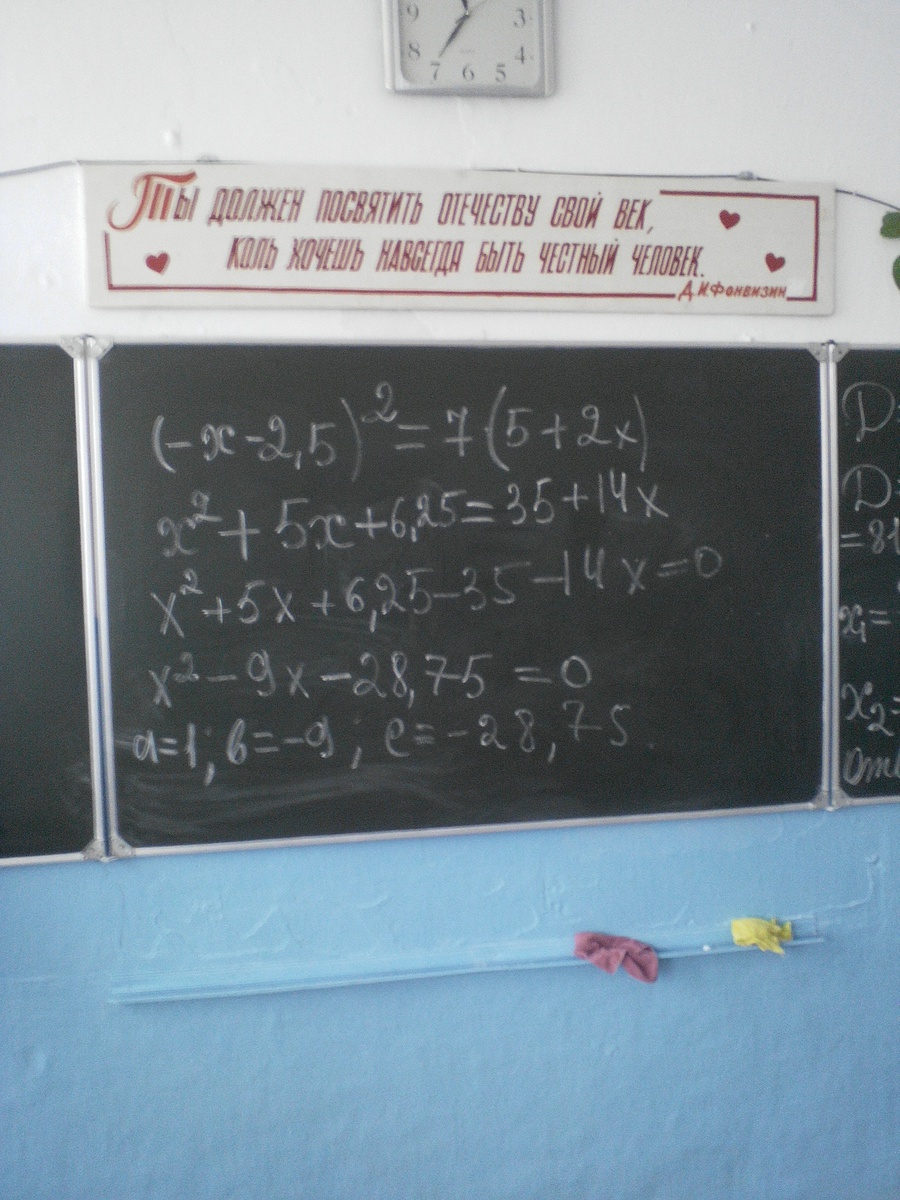 9 3
8 4
7 6 5
Ты должен посвятить отечеству свой век,
коль хочешь навсегда быть честный человек.
Д.И.Фонвизин
(-x-2,5)²=7(5+2x)
x²+5x+6,25=35+14x
x²+5x+6,25-35-14x=0
x²-9x-28,75=0
a=1; в=-9; c=-28,75.
D=
D=
=81
x₁=
x₂=